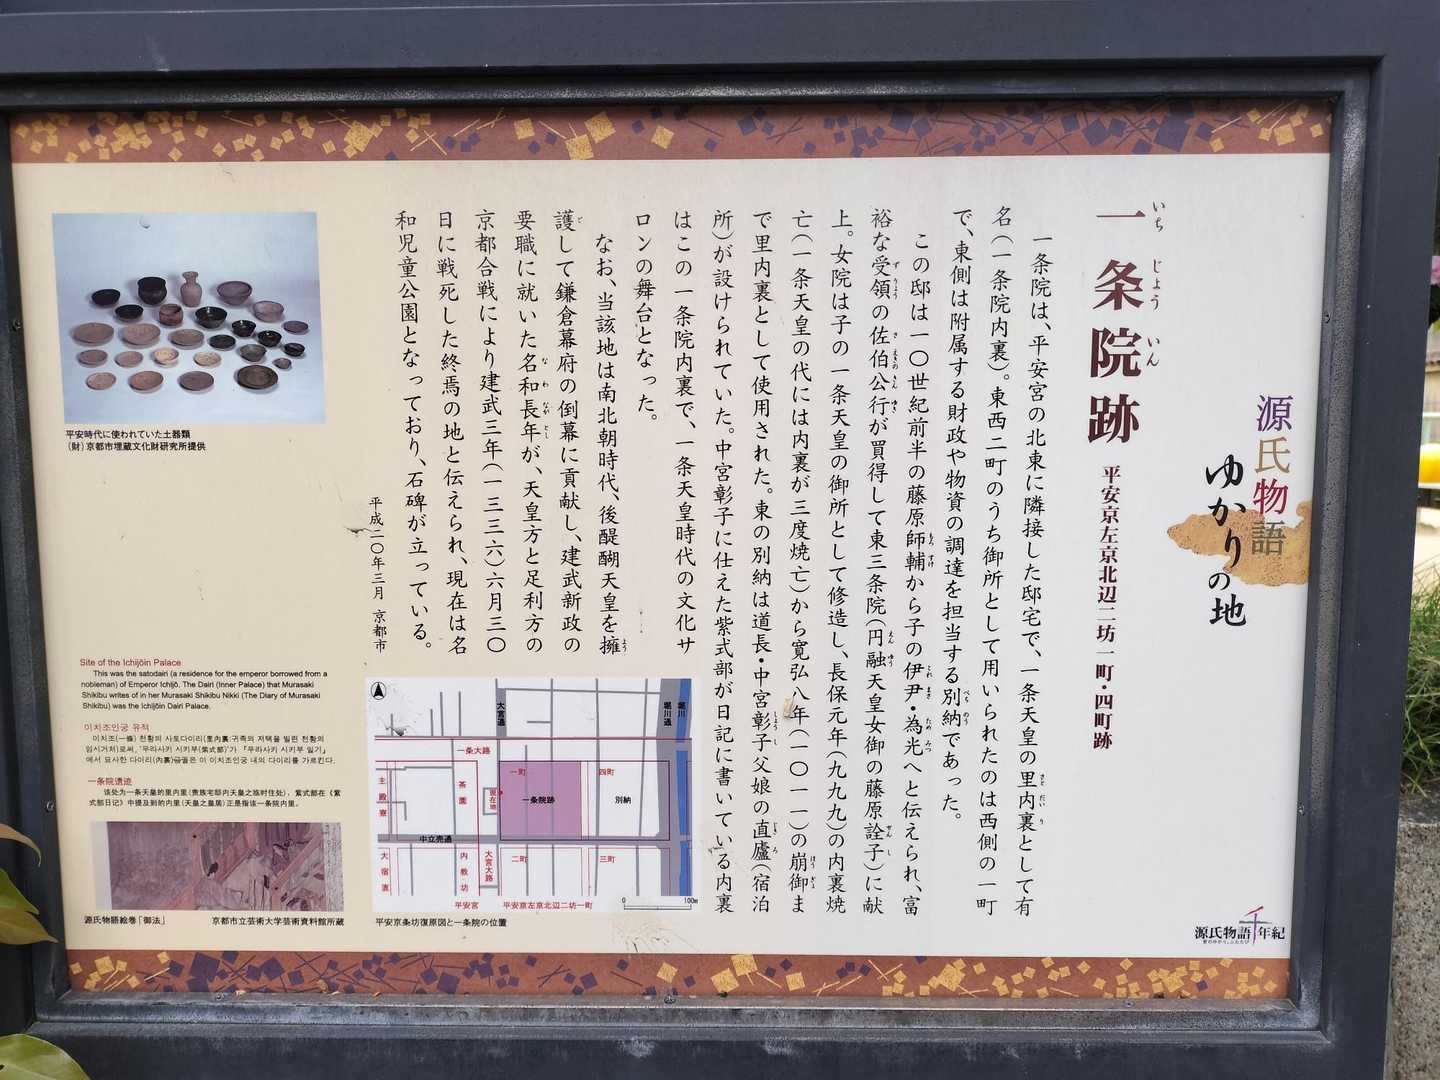 源氏物語
ゆかりの地
一条院跡
いち じょう いん
平安京左京北辺二坊一町・四町跡
一条院は、平安宮の北東に隣接した邸宅で、一条天皇の里内裏として有
名(一条院内裏)。東西二町のうち御所として用いられたのは西側の一町
で、東側は附属する財政や物資の調達を担当する別納であった。
この邸は一〇世紀前半の藤原師輔から子の伊尹・為光へと伝えられ、富
裕な受領の佐伯公行が買得して東三条院(円融天皇女御の藤原詮子)に献
上。女院は子の一条天皇の御所として修造し、長保元年(九九九)の内裏焼
亡(一条天皇の代には内裏が三度焼亡)から寛弘八年(一〇一一)の崩御ま
で里内裏として使用された。東の別納は道長・中宮彰子父娘の直廬(宿泊
所)が設けられていた。中宮彰子に仕えた紫式部が日記に書いている内裏
はこの一条院内裏で、一条天皇時代の文化サ
ロンの舞台となった。
なお、当該地は南北朝時代、後醍醐天皇を擁
護して鎌倉幕府の倒幕に貢献し、建武新政の
要職に就いた名和長年が、天皇方と足利方の
京都合戦により建武三年(一三三六)六月三〇
日に戦死した終焉の地と伝えられ、現在は名
和児童公園となっており、石碑が立っている。
平成二〇年三月 京都市
平安時代に使われていた土器類
(財)京都市埋蔵文化財研究所提供
Site of the Ichijōin Palace
This was the satodairi (a residence for the emperor borrowed from a
nobleman) of Emperor Ichijō. The Dairi (Inner Palace) that Murasaki
Shikibu writes of in her Murasaki Shikibu Nikki (The Diary of Murasaki
Shikibu) was the Ichijōin Dairi Palace.
이치조인궁 유적
이치조(一條) 천황의 사토다이리(里內裏:귀족의 저택을 빌린 천황의
임시거처)로써, '무라사키 시키부(紫式部)'가 『무라사키 시키부 일기』
에서 묘사한 다이리(內裏)궁궐은 이 이치조인궁 내의 다이리를 가르킨다.
一条院遗迹
该处为一条天皇的里内里(贵族宅邸内天皇之临时住处), 紫式部在《紫
式部日记》中提及到的内里(天皇之皇居)正是指该一条院内里。
源氏物語絵巻「御法」
京都市立芸術大学芸術資料館所蔵
大宮通
堀川通
堀川
一条大路
主殿寮
茶園
現在地
一町
四町
一条院跡
別納
中立売通
大宿直
内教坊
大宮大路
二町
三町
平安宮
平安京左京北辺二坊一町
0
100m
平安京条坊復原図と一条院の位置
源氏物語千年紀